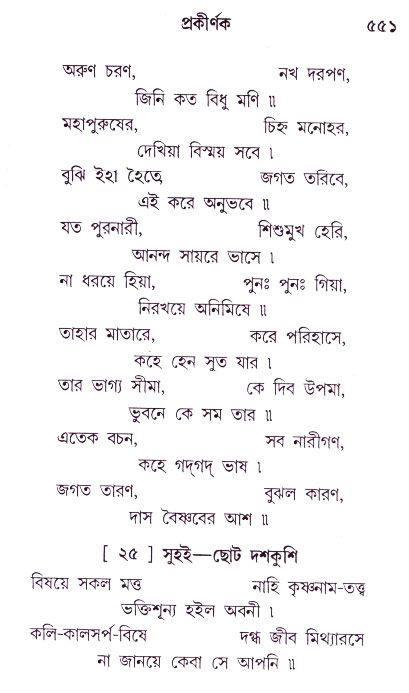 প্রকীর্ণক ৫৫১
অরুণ চরণ, নখ দরপণ,
জিনি কত বিধু মণি ॥
মহাপুরুষের, চিহ্ন মনোহর,
দেখিয়া বিস্ময় সবে ।
বুঝি ইহা হৈতে, জগত তরিবে,
এই করে অনুভবে ॥
যত পুরনারী, শিশুমুখ হেরি,
আনন্দ সায়রে ভাসে ।
না ধরয়ে হিয়া, পুনঃ পুনঃ গিয়া,
নিরখয়ে অনিমিষে ॥
তাহার মাতারে, করে পরিহাসে,
কহে হেন সুত যার ।
তার ভাগ্য সীমা, কে দিব উপমা,
ভুবনে কে সম তার ॥
এতেক বচন, সব নারীগণ,
কহে গদ্‌গদ্‌ ভাষ ।
জগত তারণ, বুঝল কারণ,
দাস বৈষ্ণবের আশ ॥
[ ২৫ ] সুহই—ছোট দশকুশি
বিষয়ে সকল মত্ত নাহি কৃষ্ণনাম-তত্ত্ব
ভক্তিশূন্য হইল অবনী ।
কলি-কালসর্প-বিষে দগ্ধ জীব মিথ্যারসে
না জানয়ে কেবা সে আপনি ॥